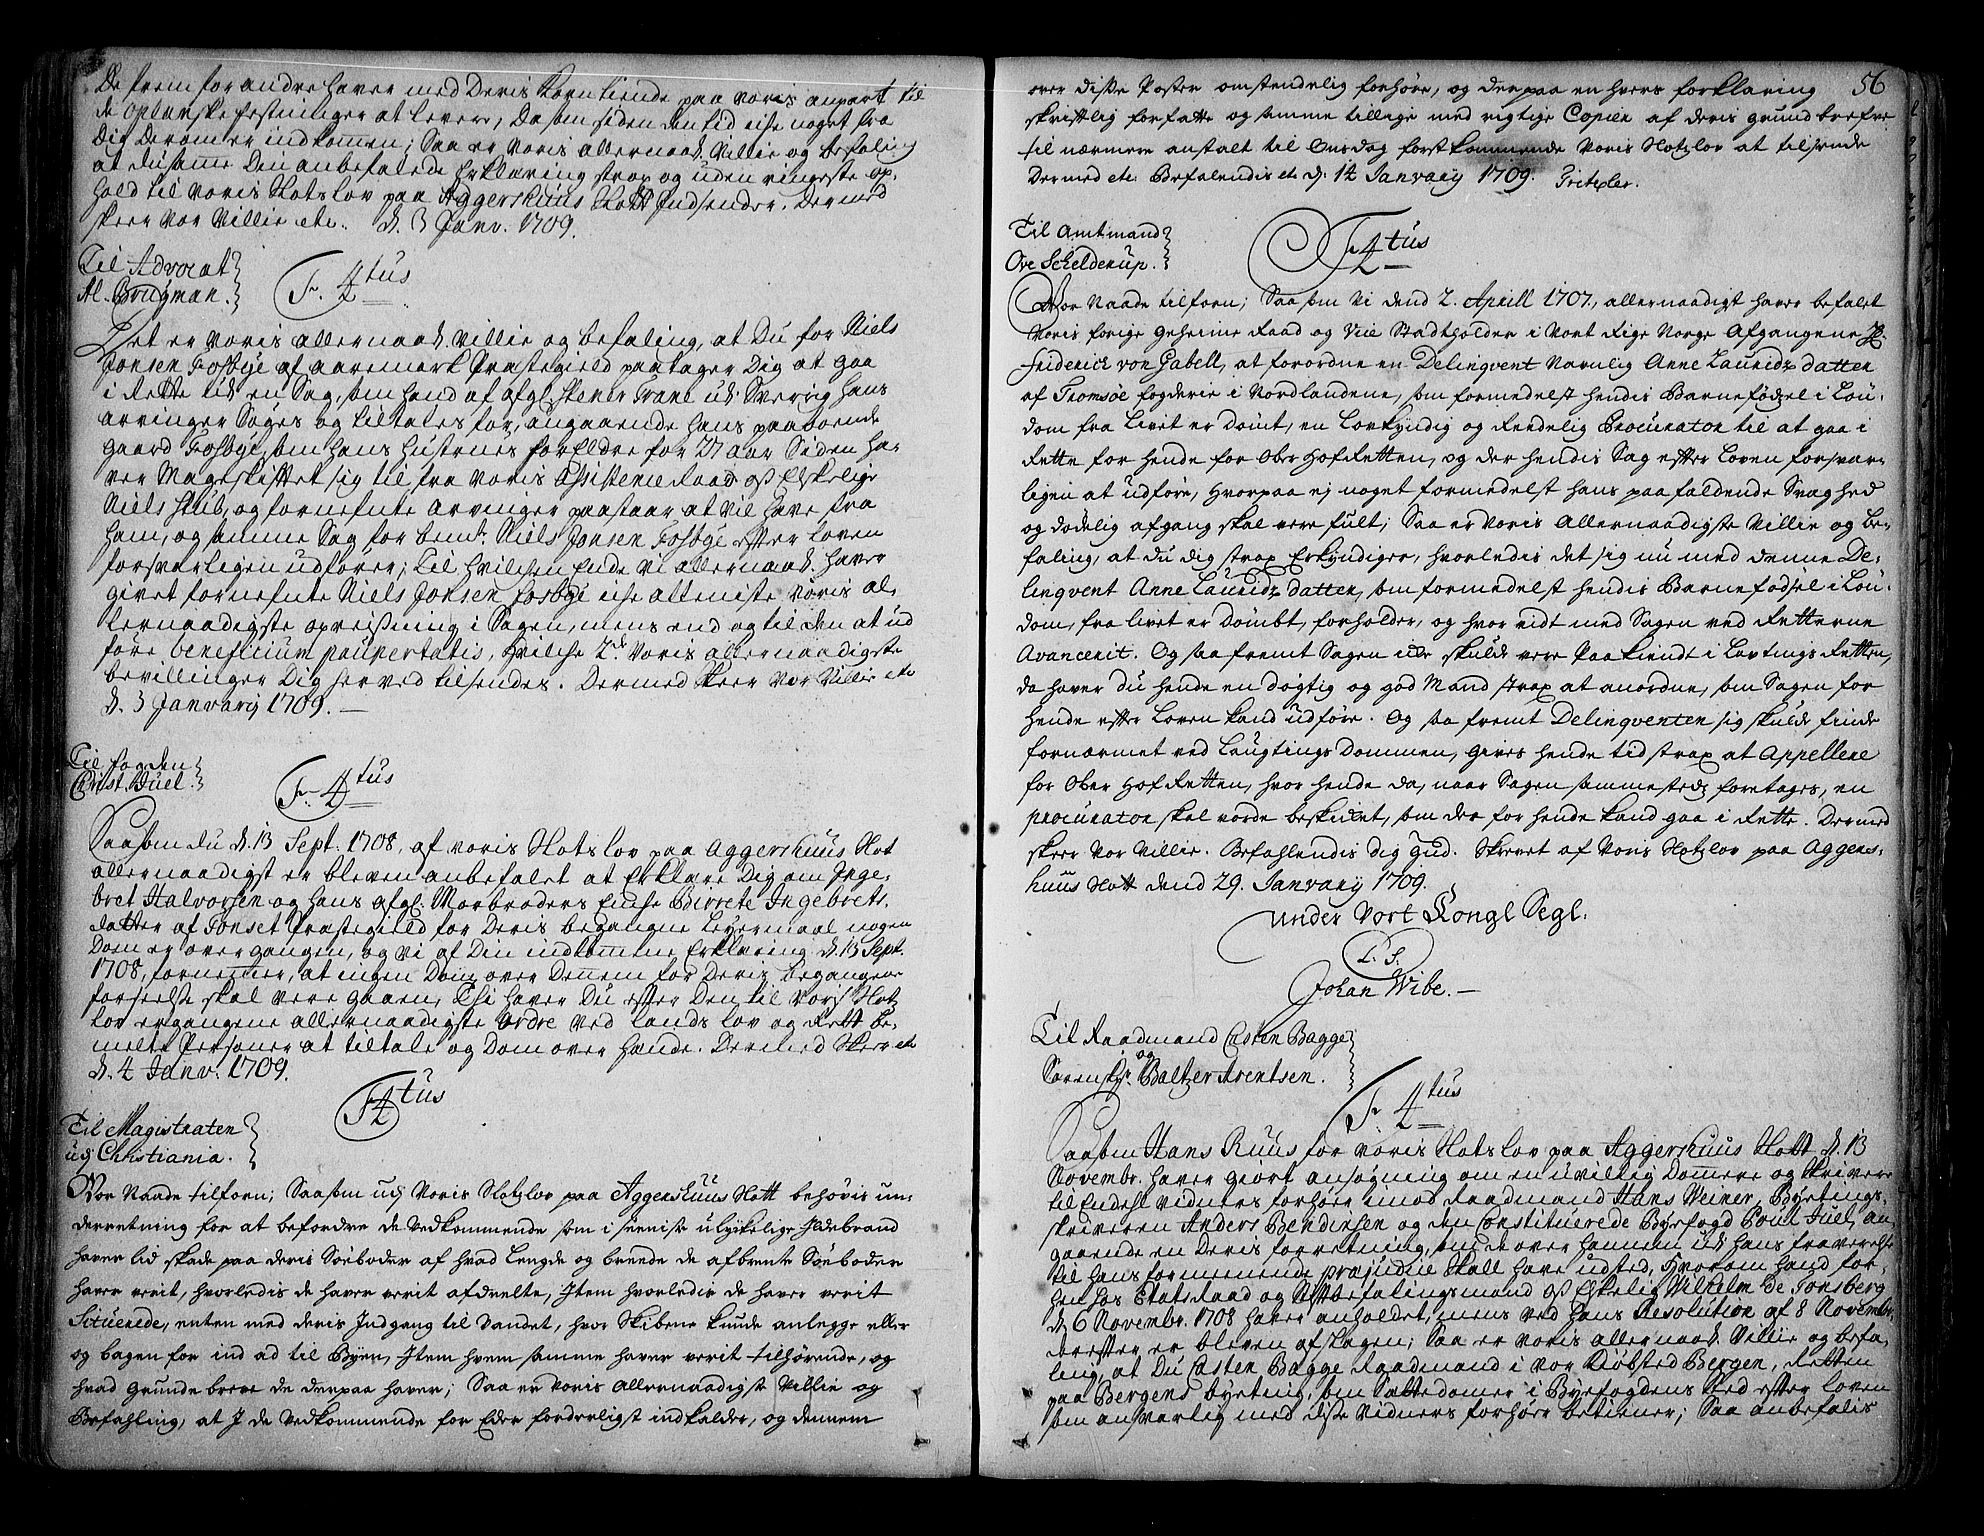 De frem for andre haver med Deris Korntiende paa voris anpart til
de oplanske festninger at levere, Da som siden den tid eche noget fra
Dig Derom er indkommen; Saa er voris allernaad. Villie og befaling
at du samme Din anbefalede Erklæring strax og uden ringeste op-
hold til voris Slotslov paa Aggershuus Slott Indsender. Dermed
skeer vor Villie etc. d. 3 Janv. 1709.
Til Advocat
Al. Brugman.
Fr. 4tus
Det er voris allernaad. Villie og befaling, at Du for Niels
Jonsen Fosbye af aaremark Præstegield paatager Dig at gaa
i Rette udi en Sag, som hand af afgl. Stener Trane udi Sverrig hans
arvinger Søges og tiltales for, angaaende hans paaboende
gaard Fosbye, som hans Hustrues forældre for 27 aar Siden ha-
ver Mageskifftet sig til fra voris Assistence Raad oss Elskelige
Niels Stub, og fornefnte arvinger paastaar at vil have fra
ham, og samme Sag for bemt. Niels Jonsen Fosbye efter loven
forsvarligen udfører; Til hvilchen Ende vi allernaad. haver
givet fornefnte Niels Jonsen Fosbye iche alleniste voris al-
lernaadigste opreisning i Sagen, mens end og til den at ud
føre beneficium paupertatis, hvilche 2de voris allernaadigste
bevillinger Dig herved tilsendes. Dermed skeer vor Villie etc
d. 3 Januarij 1709.
Til fogden
Christ. Juel.
Fr. 4tus
Saasom du d. 13 Sept. 1708, af voris Slotslov paa Aggershuus Slot
allernaadigst er bleven anbefalet at Erklære Dig om Inge-
bret Halvorsen og hans afgl. Morbroders Enche Birrete Ingebrets-
datter af Tonset Præstegield for Deris begangne Leyermaal nogen
Dom er overgangen, og vi af Din indkomne Erklæring d. 13 Sept.
1708, fornemmer, at ingen Dom over Dennem for Deris begangene
forseelse skal være gaaen, Thi haver Du efter Den til voris Slotz
lov ergangene allernaadigste ordre ved lands lov og Rett be-
melte Personer at tiltale og Dom over hænde. Dermed Skeer etc
d. 4 Janv. 1709.
Fr 4tus
Til Magistraten
udj Christiania.
Vor Naade tilforn; Saasom udj Voris Slotzlov paa Aggershuus Slott behøvis un-
derretning for at befordre de Vedkommende som i seeniste ulykelige Ildebrand
haver lid skade paa deris Søeboder af hvad Lengde og breede de afbrente Søeboder
haver verit, hvorledis de haver verit afdeelte, Item hvorledis de haver verit
Situerede, enten med deris Indgang til Vandet, hvor Skibene kunde anlegge eller
og bagen for ind ad til Byen, Item hvem samme haver verit tilhørende, og
hvad Grundebreve de derpaa haver; Saa er Voris Allernaadigste Villie og
Befahling, at I de Vedkommende for Eder forderligst indkalder, og dennem
56
over disse Poster omstendelig forhøre, og derpaa en hvers forklaring
skrifftlig forfatte og samme tillige med rigtige Copier af deris grundbrefve
til nærmere anstalt til Onsdag førstkommende Voris Slotzlov at tilsende
Dermed etc. Befalendis etc. d. 14 Januarij 1709. Tritzler.
Til Amtmand
Ove Schelderup.
Fr 4tus
Vor Naade tilforn; Saasom Vi dend 2. Aprill 1707, allernaadigst haver befalet
Voris forige Geheime Raad og Vice Stadtholder i Vort Rige Norge Afgangene Hr.
Friderich von Gabell, at forordne en Delinqvent Navnlig Anne Lauridz datter
af Tromsøe fogderie i Nordlandene, som formedelst hendis Barnefødsel i Løn-
dom fra Livet er Dømt, en Lovkyndig og Reedelig Procurator til at gaa i
Rette for hende for Ober Hof Retten, og der hendis Sag effter Loven forsvar-
ligen at udføre, Hvorpaa ej noget formedelst hans paafaldende Svaghed
og dødelig afgang skal vere fult; Saa er Voris Allernaadigste Villie og be-
faling, at du dig strax Erkyndiger, hvorledis det sig nu med denne De-
linqvent Anne Lauridz datter, som formedelst hendis Barnefødsel i Løn-
dom, fra livet er Dømbt, forholder, og hvor vidt med Sagen ved Retterne
Avancerit. Og saa fremt Sagen icke skulde vere Paakiendt i Lavtings Retten,
da haver du hende en døgtig og god Mand strax at anordne, som Sagen for
hende effter Loven kand udføre. Og saa fremt Delinqventen sig skulde finde
fornærmet ved Laugtings Dommen, gives hende tid strax at Appellere
for Ober Hof Retten, hvor hende da, naar Sagen sammesteds foretages, en
procurator skal vorde beskicket, som der for hende kand gaa i Rette. Dermed
skeer Vor Villie. Befahlendis dig Gud. Skrevet af Voris Slotzlov paa Aggers-
huus Slott dend 29. Januarij 1709.
under Vort Kongl Segl.
L. S.
Johan Wibe.
Til Raadmand Casten Bagge
og
Sorenskr. Baltzer Arentsen.
Fr 4tus
Saasom Hans Ruus for voris Slotslov paa Aggershuus Slott d. 13
Novembr. haver giort ansøgning om en uvillig Dommere og Skrivere
til Endehl vidners forhør imod Raadmand Hans Weiner, Byetings
skriveren Anders Bendixsen og den Constituerede Byefogd Poul Juel, an-
gaaende en Deris forretning, som de over hannem udi hans fraværelse
til hans formeenende præjudice skall have udsted, hvorom hand for-
hen hos Etatsraad og Stiftbefalingsmand oss Elskelig Wilhelm de Tonsberg
d. 6 Novembr. 1708 haver anholdet, mens ved hans Resolution af 8 Novembr.
derefter er bleven afslagen; Saa er voris allernaad. Villie og befa-
ling, at Du Casten Bagge Raadmand i vor Kiøbsted Bergen, Retten
paa Bergens byeting, som Sættedomer i Byefogdens Sted efter loven
som ansvarlig med disse vidners forhøer betiener; Saa anbefalis